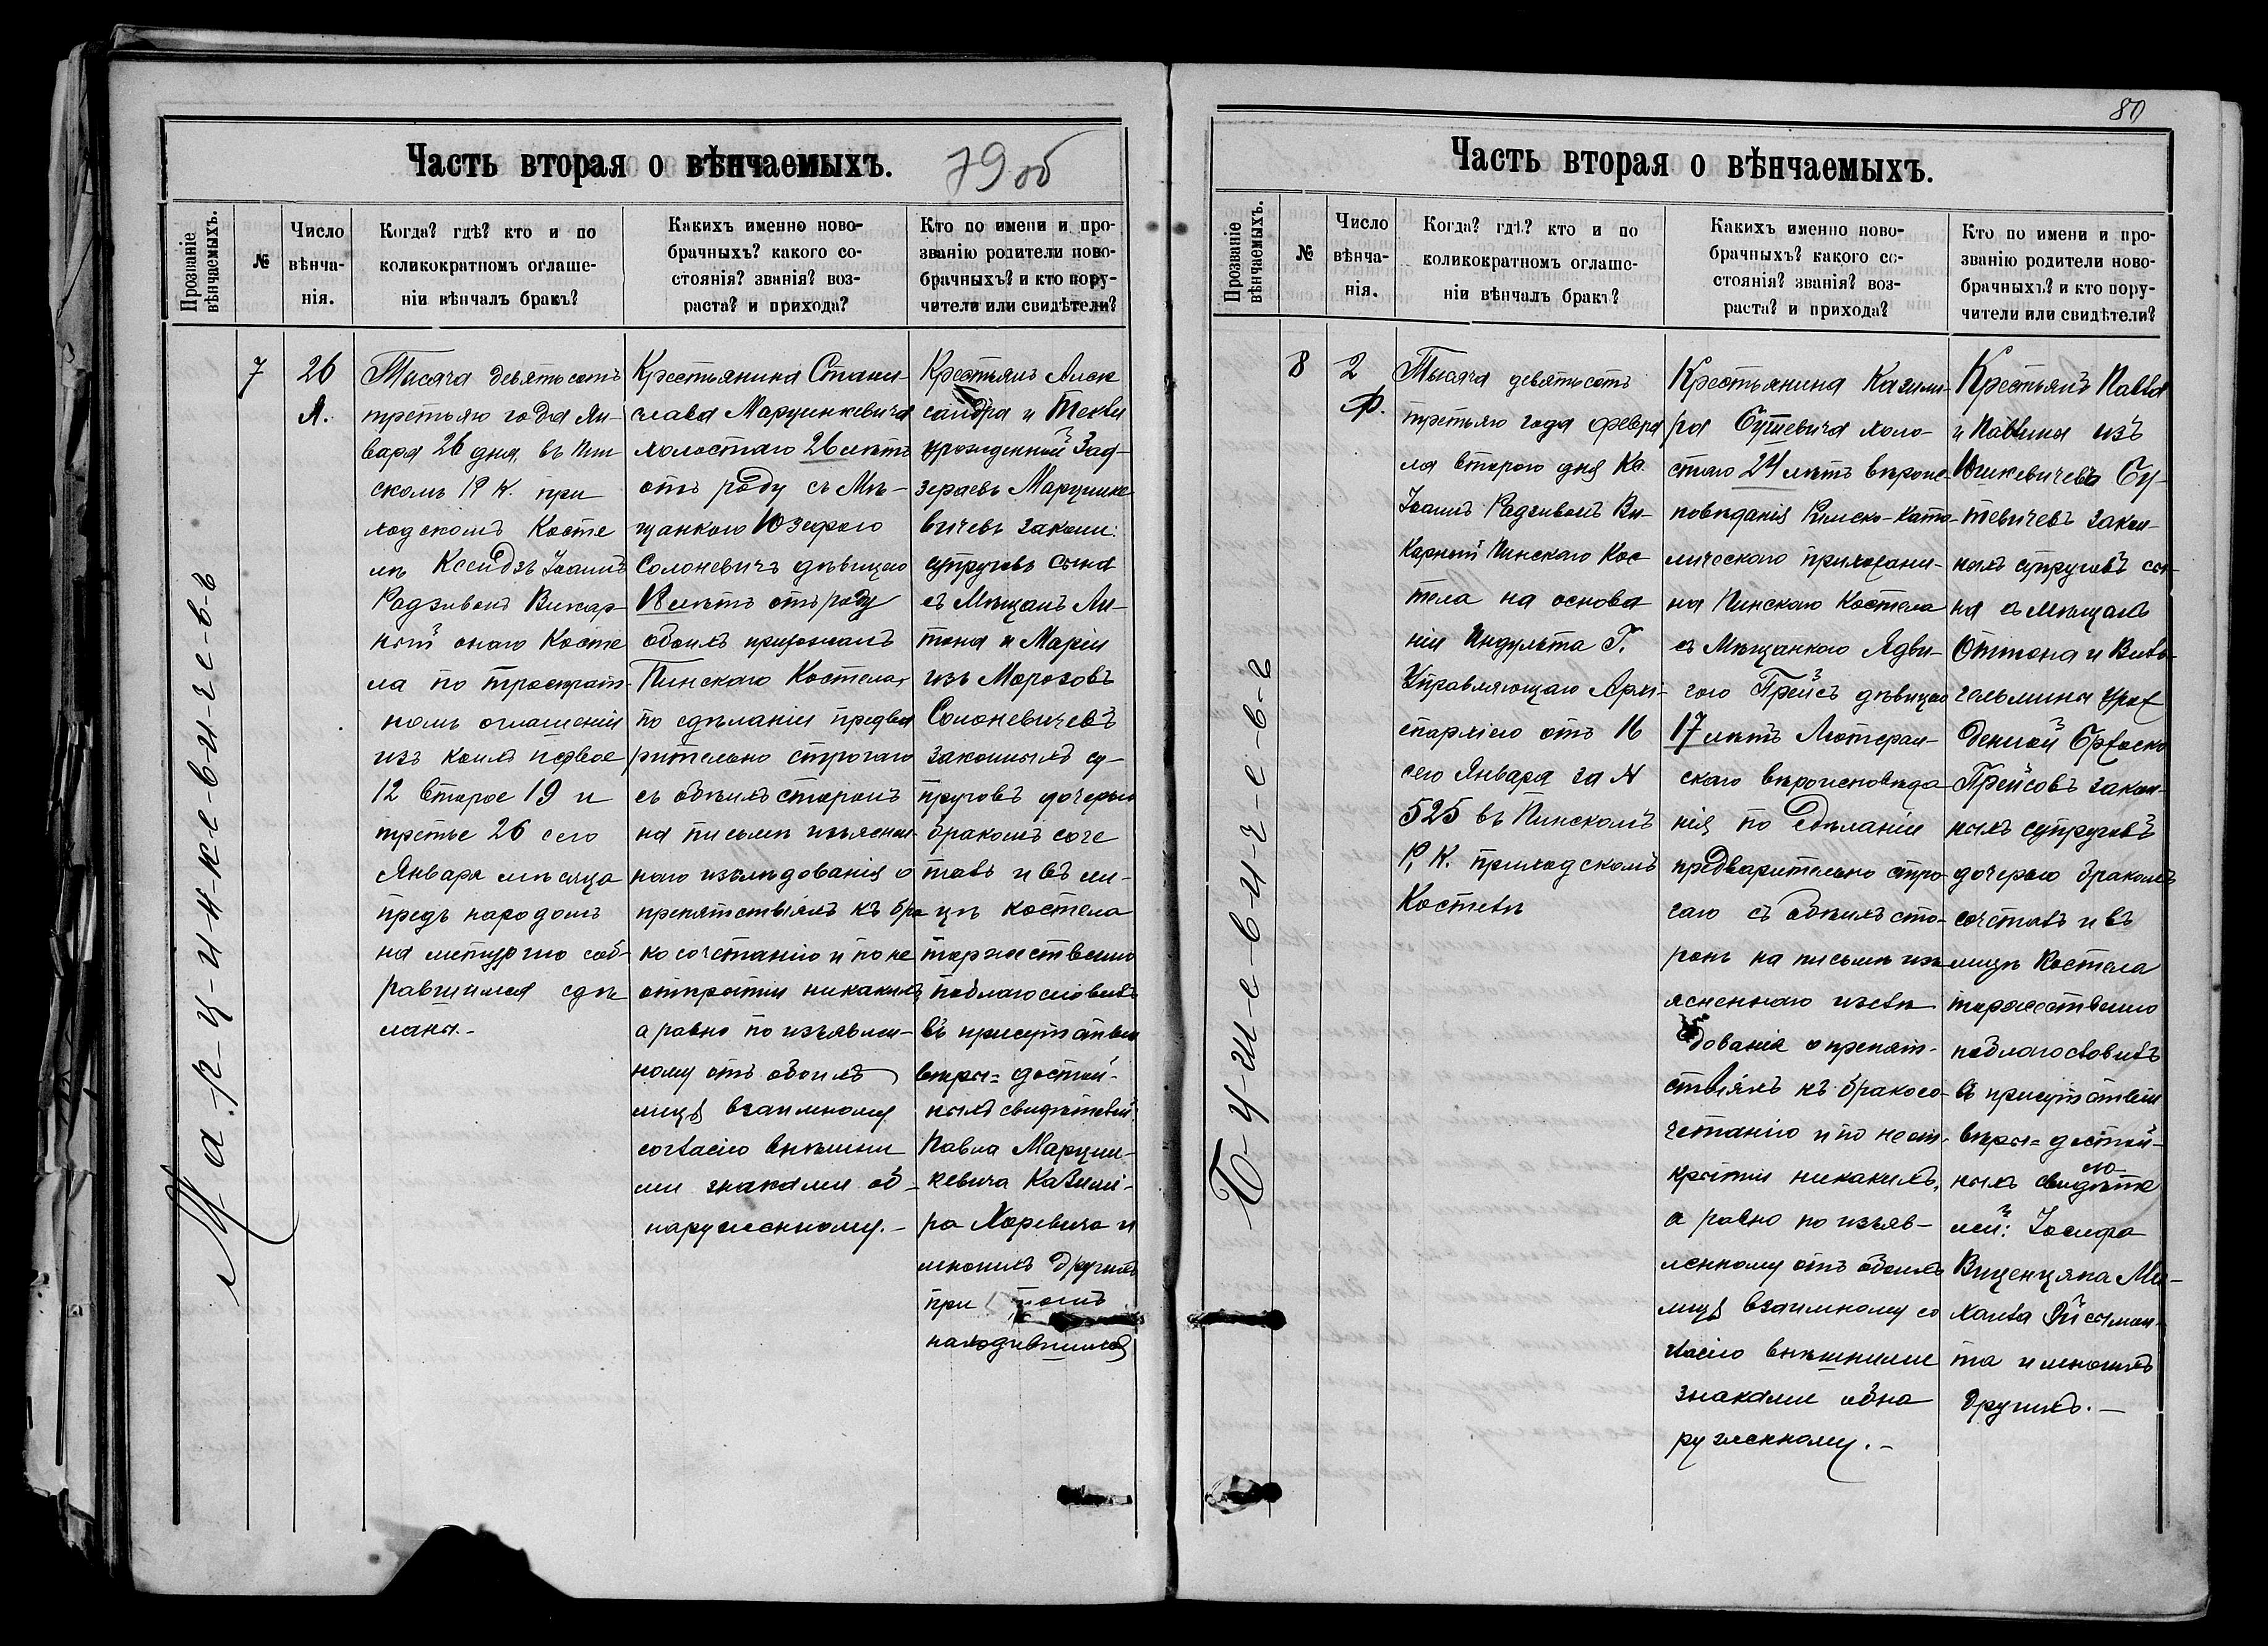 Часть вторая о вѣнчаемыхъ.
79 об
Прозваніе вѣнчаемыхъ.
№
Число вѣнча-нія.
Когда? гдѣ? кто и по
коликократномъ оглаше-
ніи вѣнчалъ бракъ?
Какихъ именно ново-
брачныхъ? какого со-
стоянія? званія? воз-
раста? и прихода?
Кто по имени и про-
званію родители ново-
брачныхъ? и кто пору-
чители или свидѣтели?
М-а-р-ц-и-н-к-е-в-и-ч-е-в-ъ
7
26
Я.
Тысяча девятьсотъ
третьяго года Ян-
варя 26 дня, въ Пин
скомъ Р К. при
ходскомъ Косте
лѣ Ксендзъ Іоаннъ
Радзивонъ Викар-
ный онаго Косте
ла по троекрат-
номъ оглашеніи
изъ коихъ первое
12 второе 19 и
третье 26 сего
Января мѣсяца
предъ народомъ
на литургію соб-
равшимся сдѣ
ланы.-
Крестьянина Стани-
слава Марцинкевича
холостаго 26 лѣтъ
отъ роду съ Мѣ-
щанкою Юзефою
Солоневичъ дѣвицею
18 лѣтъ отъ роду
обоихъ прихожанъ
Пинскаго Костела,
по сдѣланіи предва
рительно строгаго
съ обѣихъ сторонъ
на письмѣ изъяснен-
наго изслѣдованія о
препятствіяхъ къ бра
косочетанію и по не
открытіи никакихъ
а равно по изъявлен-
ному отъ обоихъ
лицъ взаимному
согласію внѣшни
ми знаками об-
наруженному.-
Крестьянъ Алек
сандра и Текли
урожденной Зад-
зераевъ Марцинке
вичевъ законн:
супруговъ сына
съ Мѣщанъ Ан-
тона и Маріи
изъ Морозовъ
Солоневичевъ
законныхъ су-
пруговъ дочерью
бракомъ соче
талъ и въ ли-
цѣ костела
торжественно
поблагословилъ
въ присутствіи
вѣры= достой-
ныхъ свидѣтелей:
Павла Марцин-
кевича Казими-
ра Хоревича и
многихъ другихъ
при томъ
находившихся
80
Часть вторая о вѣнчаемыхъ.
Прозваніе вѣнчаемыхъ.
№
Число вѣнча-нія.
Когда? гдѣ? кто и по
коликократномъ оглаше-
ніи вѣнчалъ бракъ?
Какихъ именно ново-
брачныхъ? какого со-
стоянія? званія? воз-
раста? и прихода?
Кто по имени и про-
званію родители ново-
брачныхъ? и кто пору-
чители или свидѣтели?
8
2
Ф.
Тысяча девятьсотъ
третьяго года Февра
ля второго дня Кс.
Іоаннъ Радзивонъ Ви-
карный Пинскаго Кос
тела на основа
ніи Индульта Г.
Управляющаго Архі-
епархіею отъ 16
сего Января за N
525 въ Пинскомъ
Р, К. приходскомъ
Костелѣ
Крестьянина Казими
ра холо-
стаго 24 лѣтъ вѣроис-
повѣданія Римско-като
лическаго прихожани-
на Пинскаго Костела
съ Мѣщанкою Ядви-
гою Прейсъ дѣвицею
17 лѣтъ Лютеран-
скаго вѣроисповѣда
нія по сдѣланіи
предварительно стро-
гаго съ обѣихъ сто-
ронъ на письмѣ изъ
ясненнаго изслѣ
дованія о препят-
ствіяхъ къ бракосо-
четанію и по неот-
крытіи никакихъ,
а равно по изъяв-
ленному отъ обоихъ
лицъ взаимному со
гласію внѣшними
знаками обна
руженному.-
Крестьянъ Павла
и Павлины изъ
Юшкевичевъ
закон-
ныхъ супруговъ сы-
на съ мѣщанъ
Оттона и Виль-
гельмины урож
денной
Прейсовъ закон-
ныхъ супруговъ
дочерью бракомъ
сочеталъ и въ
лицѣ Костела
торжественно
поблагословилъ
въ присутствіи
вѣры= достой-
ныхъ свидѣте
лей: Іосифа
Михаила
та и многихъ
другихъ.-